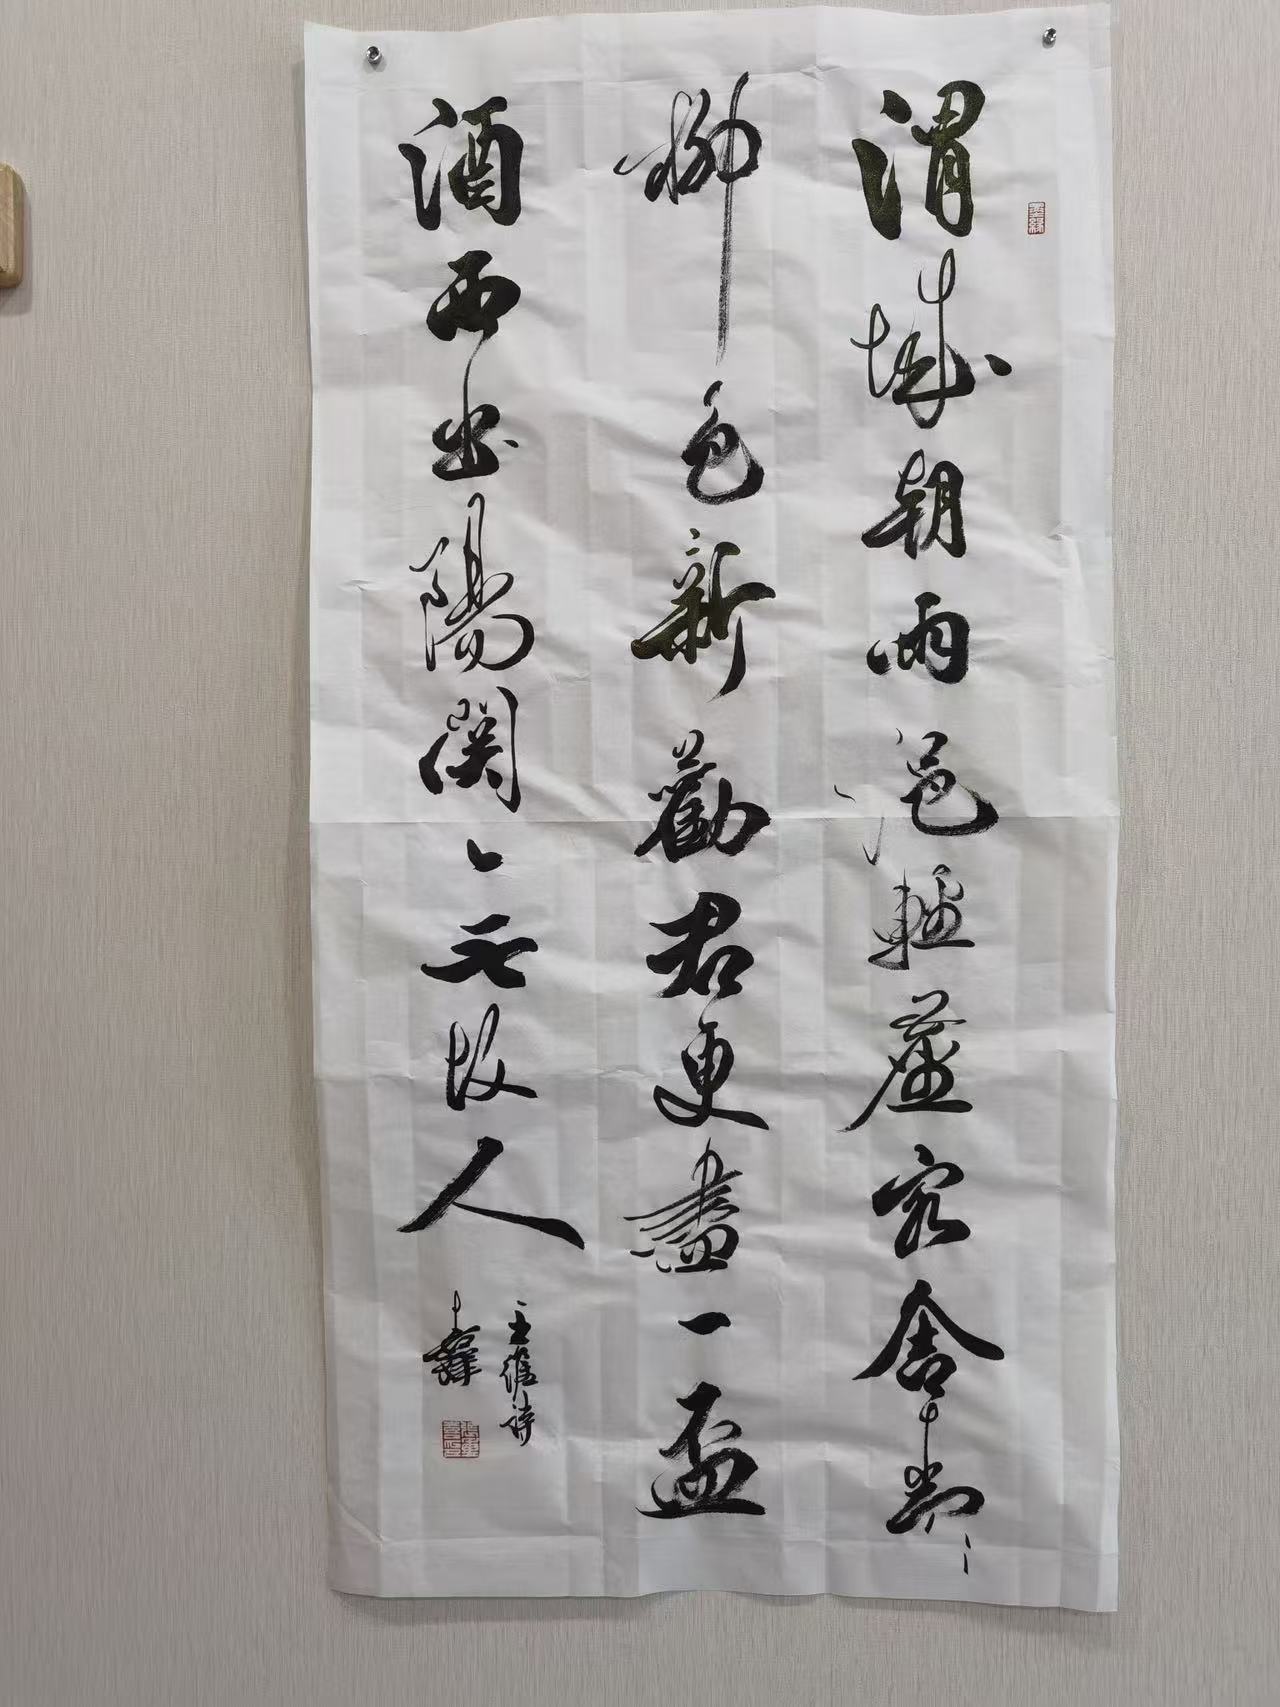 渭城朝雨浥輕塵客舍青〻
柳色新勸君更盡一盃
酒西出陽関〻无故人
王維詩